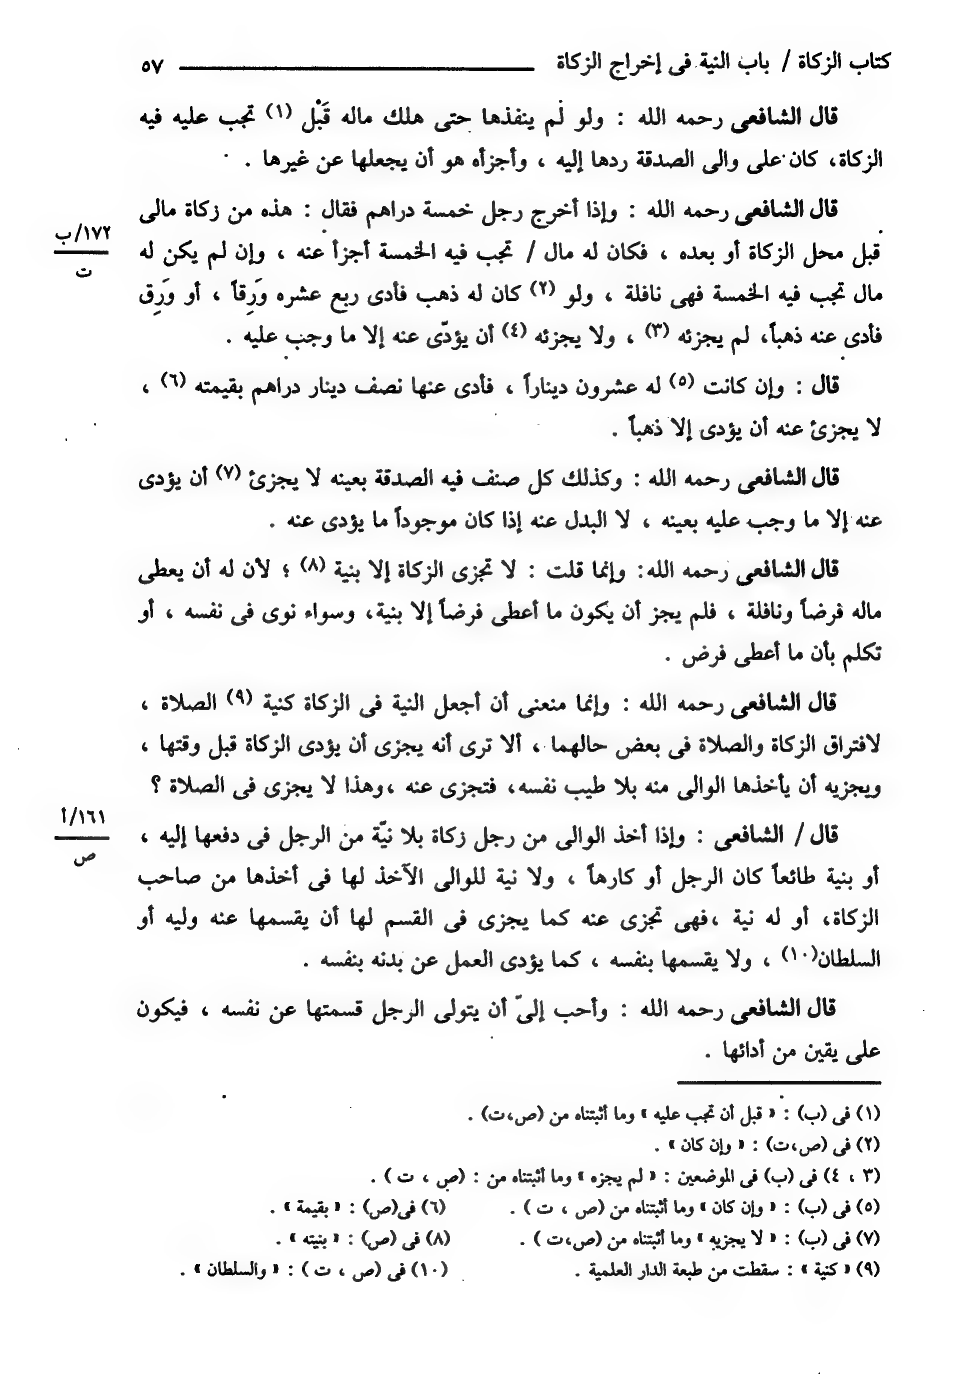 كتاب الزكاة / باب النية فى إخراج الزكاة ٥٧
قال الشافعى رحمه الله : ولو لم ينفذها حتى هلك ماله قَبْل (١) تجب عليه فيه
الزكاة، كان على والى الصدقة ردها إليه ، وأجزأه هو أن يجعلها عن غيرها .
قال الشافعى رحمه الله : وإذا أخرج رجل خمسة دراهم فقال : هذه من زكاة مالى
١٧٢/ب
ت
قبل محل الزكاة أو بعده ، فكان له مال / تجب فيه الخمسة أجزأ عنه ، وإن لم يكن له
مال تجب فيه الخمسة فهى نافلة ، ولو (٢) كان له ذهب فأدى ربع عشره وَرِقاً ، أو وَرِق
فأدى عنه ذهباً، لم يجزئه (٣) ، ولا يجزئه (٤) أن يؤدّى عنه إلا ما وجب عليه .
قال : وإن كانت (٥) له عشرون ديناراً ، فأدى عنها نصف دينار دراهم بقيمته (٦) ،
لا يجزئ عنه أن يؤدى إلا ذهباً .
قال الشافعى رحمه الله : وكذلك كل صنف فيه الصدقة بعينه لا يجزئ (٧) أن يؤدى
عنه إلا ما وجب عليه بعينه ، لا البدل عنه إذا كان موجوداً ما يؤدى عنه .
قال الشافعى رحمه الله: وإنما قلت : لا تجزى الزكاة إلا بنية (٨) ؛ لأن له أن يعطى
ماله فرضاً ونافلة ، فلم يجز أن يكون ما أعطى فرضاً إلا بنية، وسواء نوى فى نفسه ، أو
تكلم بأن ما أعطى فرض .
قال الشافعى رحمه الله : وإنما منعنى أن أجعل النية فى الزكاة كنية (٩) الصلاة ،
لافتراق الزكاة والصلاة فى بعض حالهما ، ألا ترى أنه يجزى أن يؤدى الزكاة قبل وقتها ،
ويجزيه أن يأخذها الوالى منه بلا طيب نفسه، فتجزى عنه ،وهذا لا يجزى فى الصلاة ؟
١٦١/أ
ص
قال / الشافعى : وإذا أخذ الوالى من رجل زكاة بلا نيّة من الرجل فى دفعها إليه ،
أو بنية طائعاً كان الرجل أو كارهاً ، ولا نية للوالى الآخذ لها فى أخذها من صاحب
الزكاة، أو له نية ،فهى تجزى عنه كما يجزى فى القسم لها أن يقسمها عنه وليه أو
السلطان(١٠) ، ولا يقسمها بنفسه ، كما يؤدى العمل عن بدنه بنفسه .
قال الشافعى رحمه الله : وأحب إلىّ أن يتولى الرجل قسمتها عن نفسه ، فيكون
على يقين من أدائها .
(١) فى (ب) : « قبل أن تجب عليه » وما أثبتناه من (ص،ت) .
(٢) فى (ص،ت) : « وإن كان » .
(٣ ، ٤) فى (ب) فى الموضعين : « لم يجزه » وما أثبتناه من : (ص ، ت ) .
(٥) فى (ب) : « وإن كان » وما أثبتناه من (ص ، ت ) . (٦) فى(ص) : « بقيمة » .
(٧) فى (ب) : « لا يجزيه » وما أثبتناه من (ص،ت ) . (٨) فى (ص) : « بنيته » .
(٩) « كنية » : سقطت من طبعة الدار العلمية . (١٠) فى (ص ، ت ) : « والسلطان » .